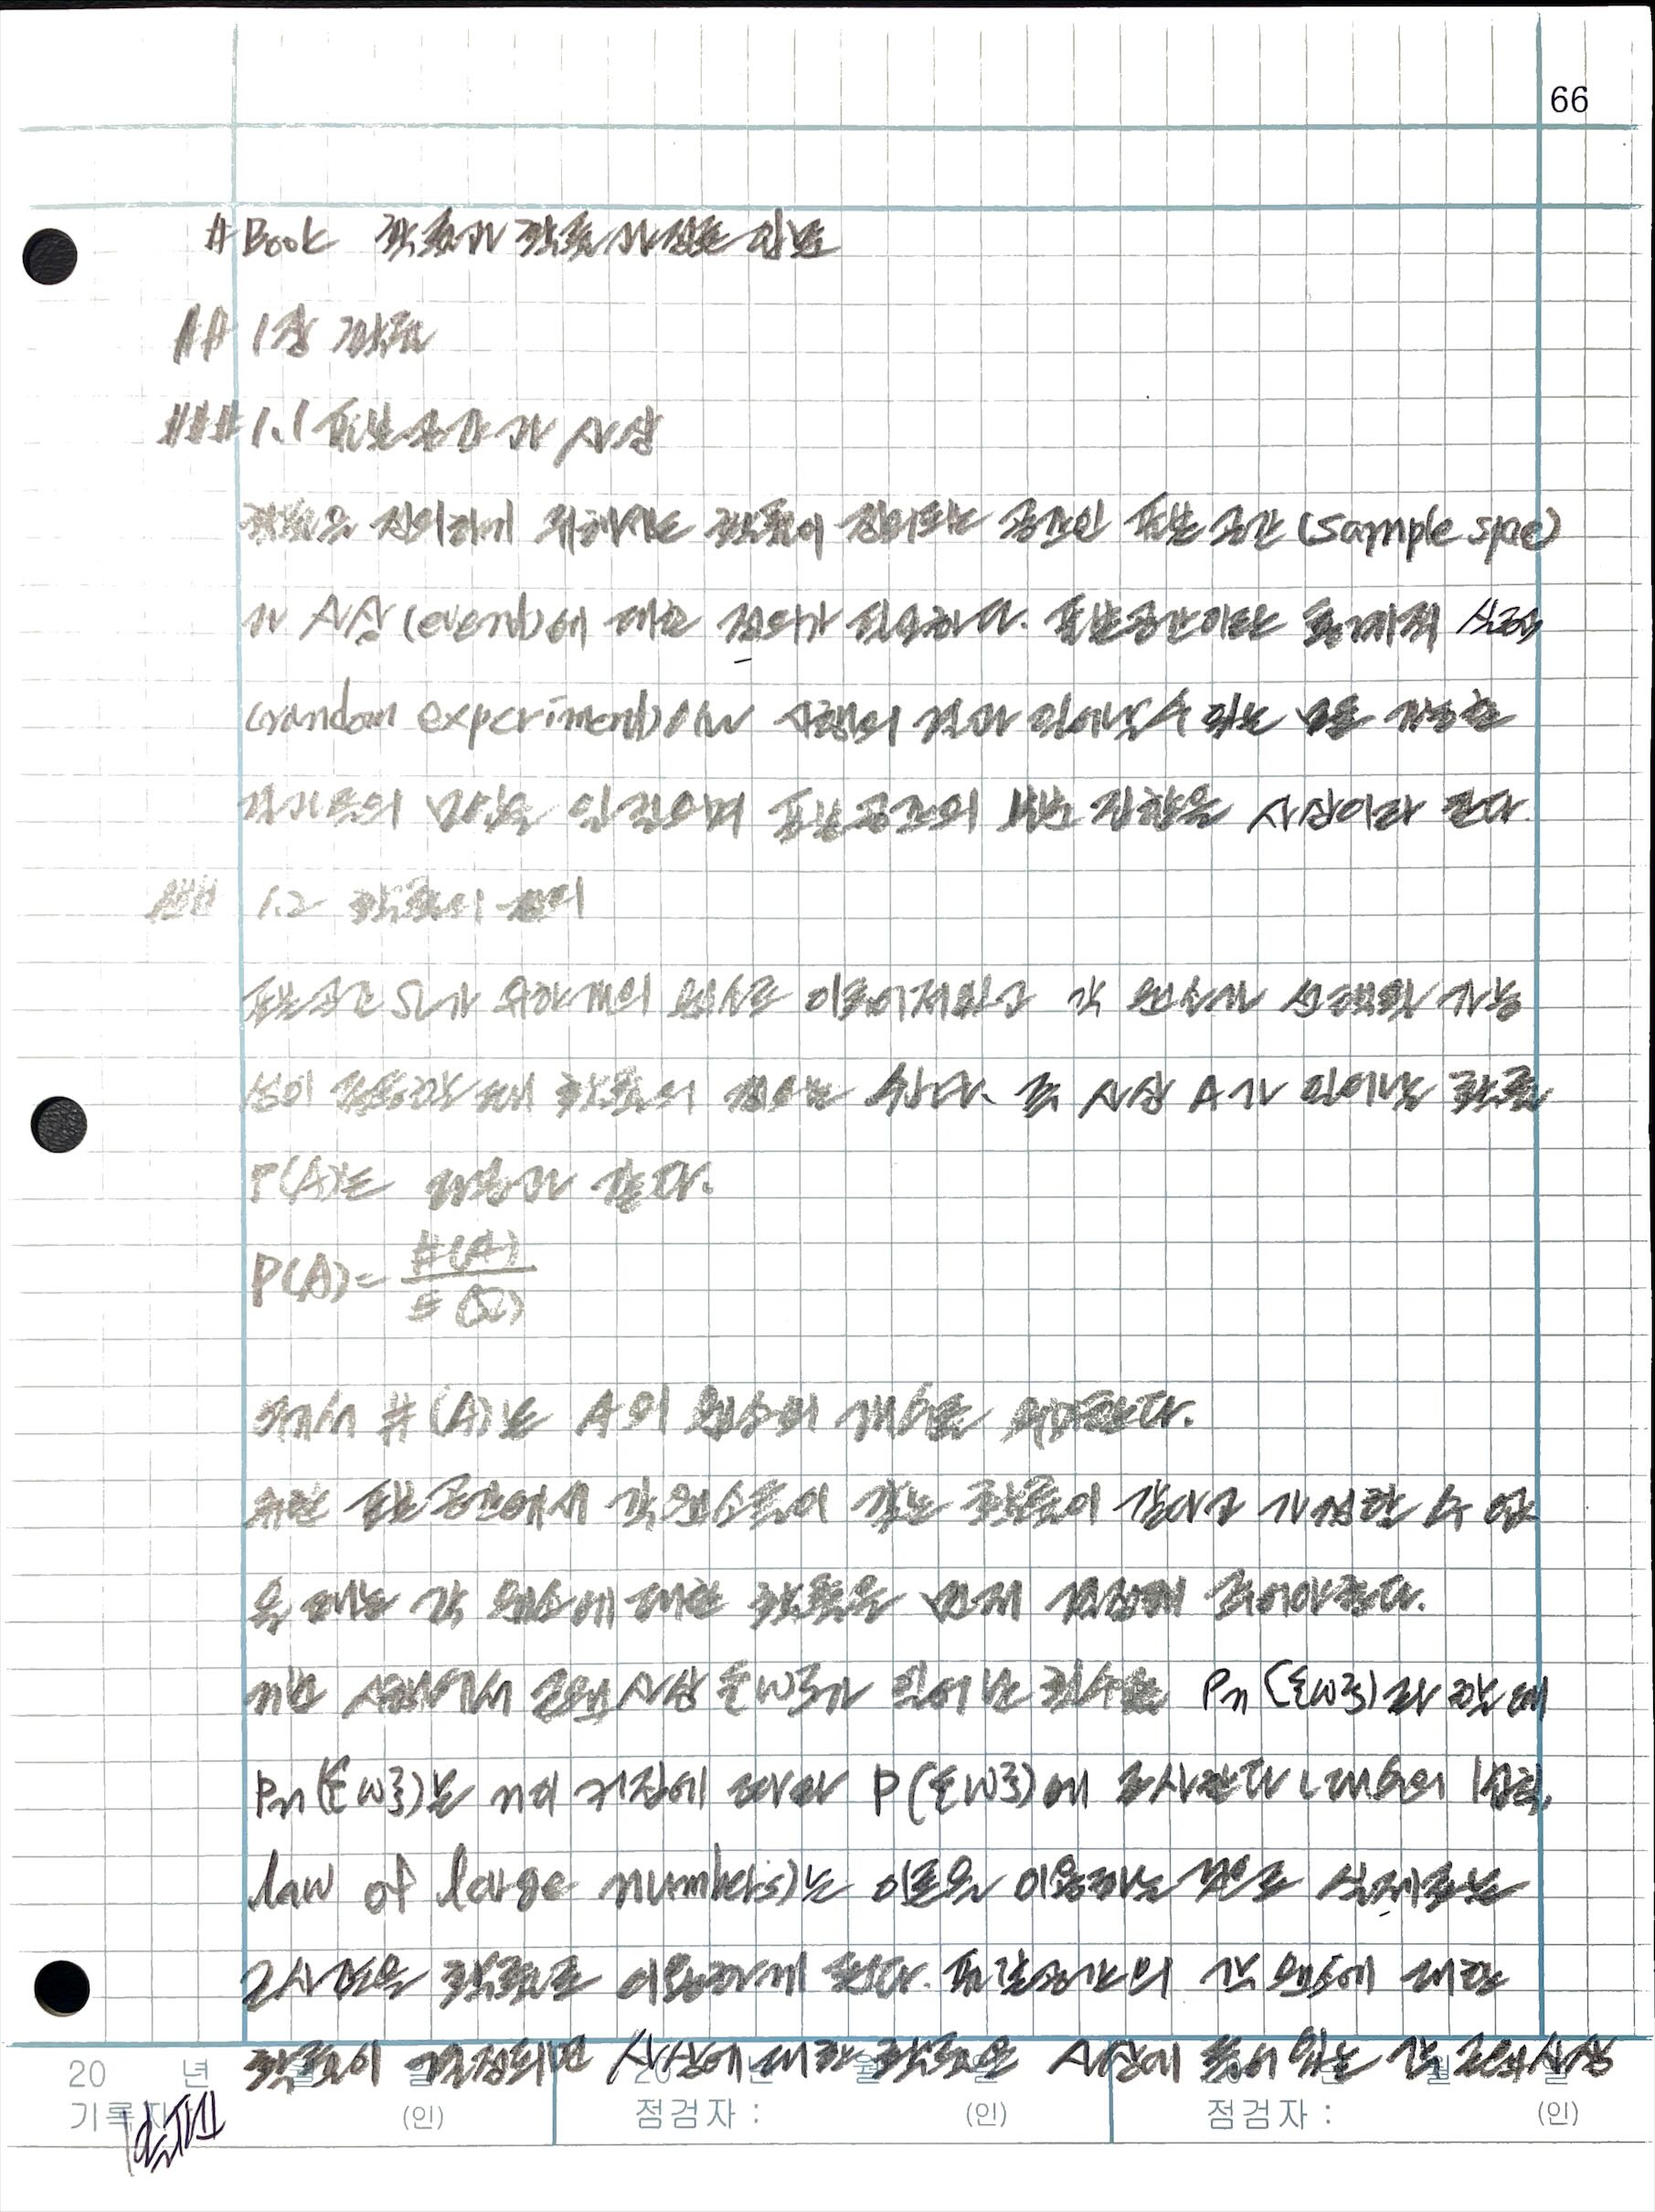 66
# Book 확률과 확률과정론 입문
## 1장 확률
### 1.1 표본공간과 사상
확률을 정의하기 위해서는 확률이 정의되는 공간인 표본 공간 (sample space)
과 사상 (event)에 대한 정의가 필요하다. 표본공간이란 통계적 실험
(random experiment)에서 시행의 결과 일어날 수 있는 모든 가능한
결과들의 모임을 일컬으며 표본공간의 부분 집합을 사상이라 한다.
### 1.2 확률의 정의
표본공간 Ω가 유한개의 원소로 이루어져있고 각 원소가 선택될 가능
성이 동등할 때 확률의 정의는 쉽다. 즉 사상 A가 일어날 확률
P(A)는 다음과 같다.
P(A) = #(A) / #(Ω)
여기서 #(A)는 A의 원소의 개수를 의미한다.
유한 표본공간에서 각 원소들이 갖는 확률이 같다고 가정할 수 없
을 때는 각 원소에 대한 확률을 먼저 결정해 주어야한다.
n번 시행에서 근원사상 {ω}가 일어난 횟수를 Pn({ω})라 할 때
Pn({ω})는 n이 커짐에 따라 P({ω})에 근사한다 (대수의 법칙,
law of large numbers)는 이론을 이용하는 것으로 실제로는
근사값을 확률로 이용하게 된다. 표본공간의 각 원소에 대한
확률이 결정되면 사상에 대한 확률은 사상에 들어 있는 각 근원사상
20 년 월 일 20 년 월 일 년 월 일
기록자 (인) 점검자 : (인) 점검자 : (인)